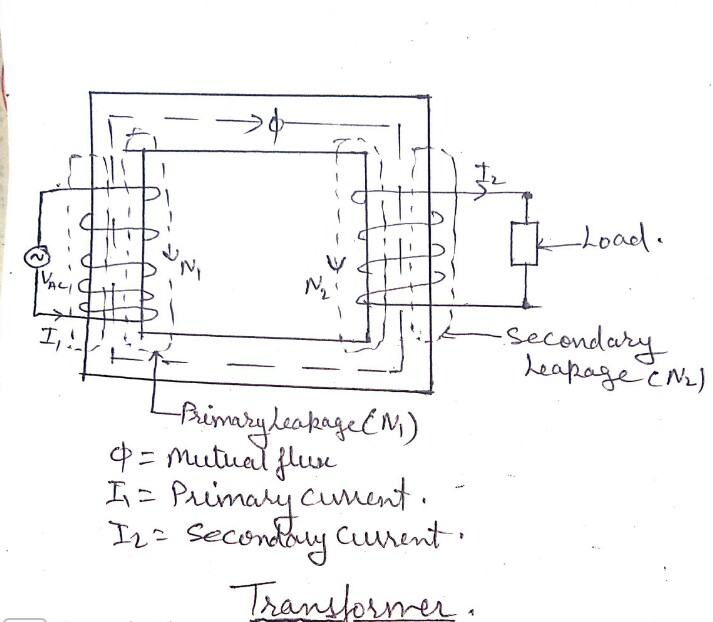 ϕ
I2
Load.
VAC
N1
N2
I1
Secondary
Leakage (N2)
Primary Leakage (N1)
ϕ = Mutual flux
I1 = Primary current.
I2 = Secondary current.
Transformer.